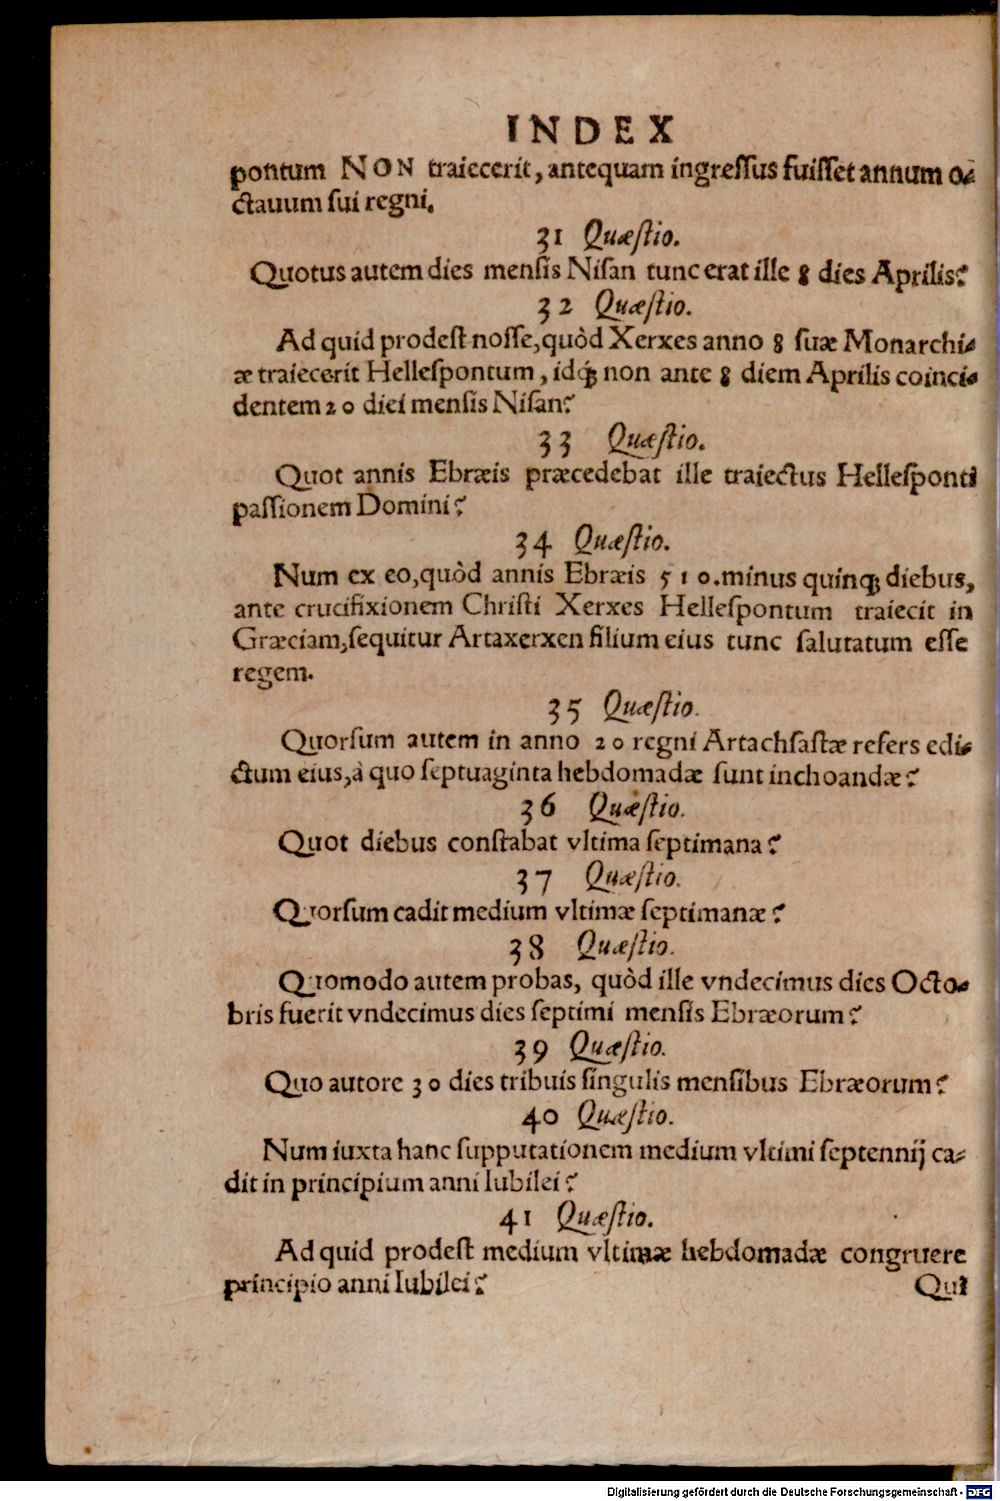 INDEX
pontum NON traiecerit, antequam ingreſſus fuiſſet annum o-
ctauum ſui regni.
31 Quæſtio.
Quotus autem dies menſis Niſan tunc erat ille 8 dies Aprilis?
32 Quæſtio.
Ad quid prodeſt noſſe, quòd Xerxes anno 8 ſuæ Monarchi-
æ traiecerit Helleſpontum, idq́; non ante 8 diem Aprilis coinci-
dentem 20 diei menſis Niſan?
33 Quæſtio.
Quot annis Ebræis præcedebat ille traiectus Helleſponti
paſſionem Domini?
34 Quæſtio.
Num ex eo, quòd annis Ebræis 510. minus quinq; diebus,
ante crucifixionem Chriſti Xerxes Helleſpontum traiecit in
Græciam, ſequitur Artaxerxen filium eius tunc ſalutatum eſſe
regem.
35 Quæſtio.
Quorſum autem in anno 20 regni Artachſaſtæ refers edi-
ctum eius, à quo ſeptuaginta hebdomadæ ſunt inchoandæ?
36 Quæſtio.
Quot diebus conſtabat vltima ſeptimana?
37 Quæſtio.
Quorſum cadit medium vltimæ ſeptimanæ?
38 Quæſtio.
Quomodo autem probas, quòd ille vndecimus dies Octo-
bris fuerit vndecimus dies ſeptimi menſis Ebræorum?
39 Quæſtio.
Quo autore 30 dies tribuis ſingulis menſibus Ebræorum?
40 Quæſtio.
Num iuxta hanc ſupputationem medium vltimi ſeptennij ca-
dit in principium anni Iubilei?
41 Quæſtio.
Ad quid prodeſt medium vltimæ hebdomadæ congruere
principio anni Iubilei?
Qui
Digitalisierung gefördert durch die Deutsche Forschungsgemeinschaft - DFG